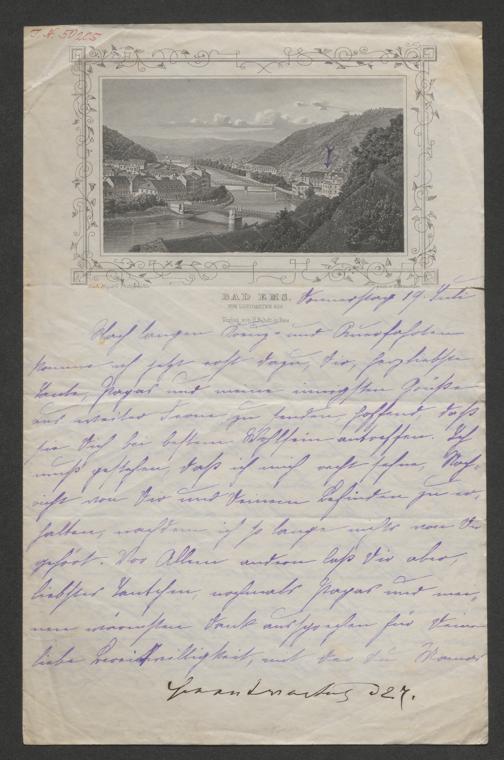 I. N. 50205
BAD EMS.
Donnerstag 19. Juli
Nach langen Kreuz- und Querfahrten
komme ich jetzt erst dazu, Dir, herzliebste
Tante, Papas und meine innigsten Grüße
aus weiter Ferne zu senden, hoffend daß
sie Dich bei bestem Wohlsein antreffen. Ich
muß gestehen, daß ich mich recht sehne, Nach-
richt von Dir und Deinem Befinden zu er-
halten, nachdem ich so lange nichts von Dir
gehört. Vor Allem andern laß Dir aber,
liebstes Tantchen, nochmals Papas und mei-
nen wärmsten Dank aussprechen für Deine
liebe Bereitwilligkeit, mit der Du Mamas
Beantwortet d 27.